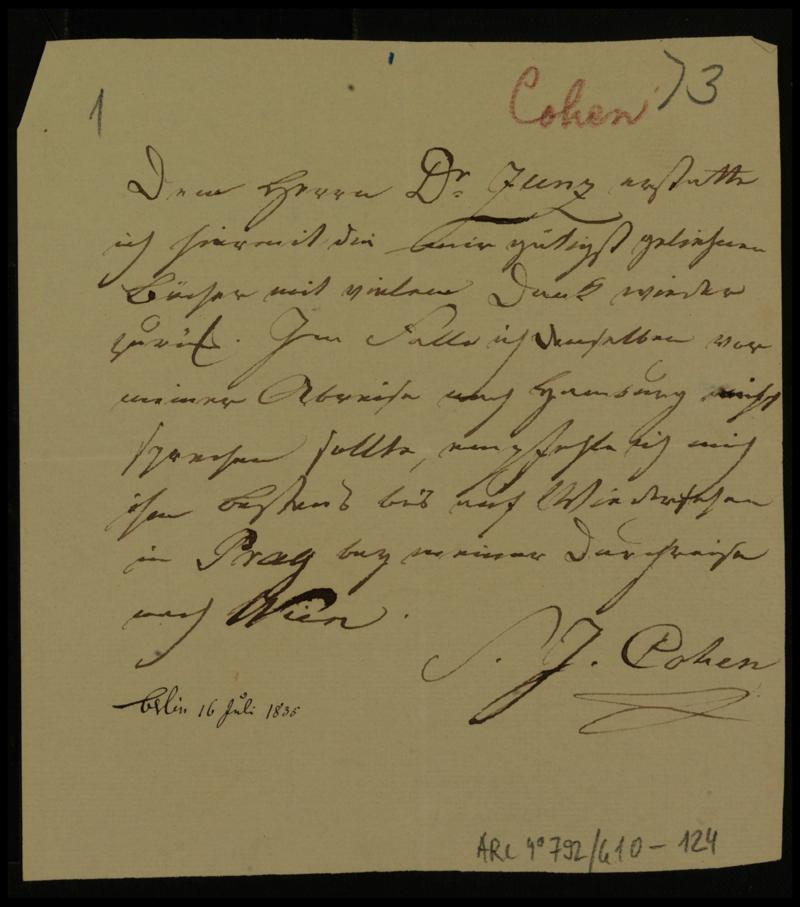 1
Cohen 73
Dem Herrn Dr. Zunz erstatte
ich hiermit die mir gütigst geliehenen
Bücher mit vielem Dank wieder
zurük. Im Falle ich denselben vor
meiner Abreise nach Hamburg nicht
sprechen sollte, empfehle ich mich
ihm bestens bis auf Wiedersehen
in Prag bey meiner Durchreise
nach Wien.
S. J. Cohen
Berlin 16 Juli 1835
ARC 4° 792/G10-124